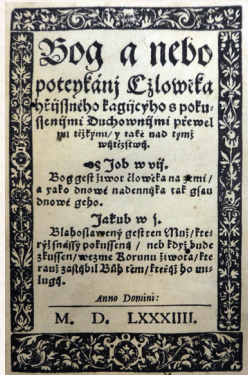 Bog a nebo
poteykánj Cžlowěka
hřjssného kagjcyho s poku-
ssenjmi Duchownjmi přewel
mi těžkými / y také nad tymž
wjtězstwj.
Job w vij.
Bog gest žiwot člowěka na zemi /
a yako dnowé nádennjka tak gsau
dnowé geho.
Jakub w j.
Blahoslawený gest ten Muž / kte-
rýž snássý pokussenj / neb když bude
zkussen / wezme Korunu žiwota / kte-
rauž zasljbil Bůh těm / kteřjž ho mi-
lugj.
Anno Domini:
M. D. LXXXIIII.